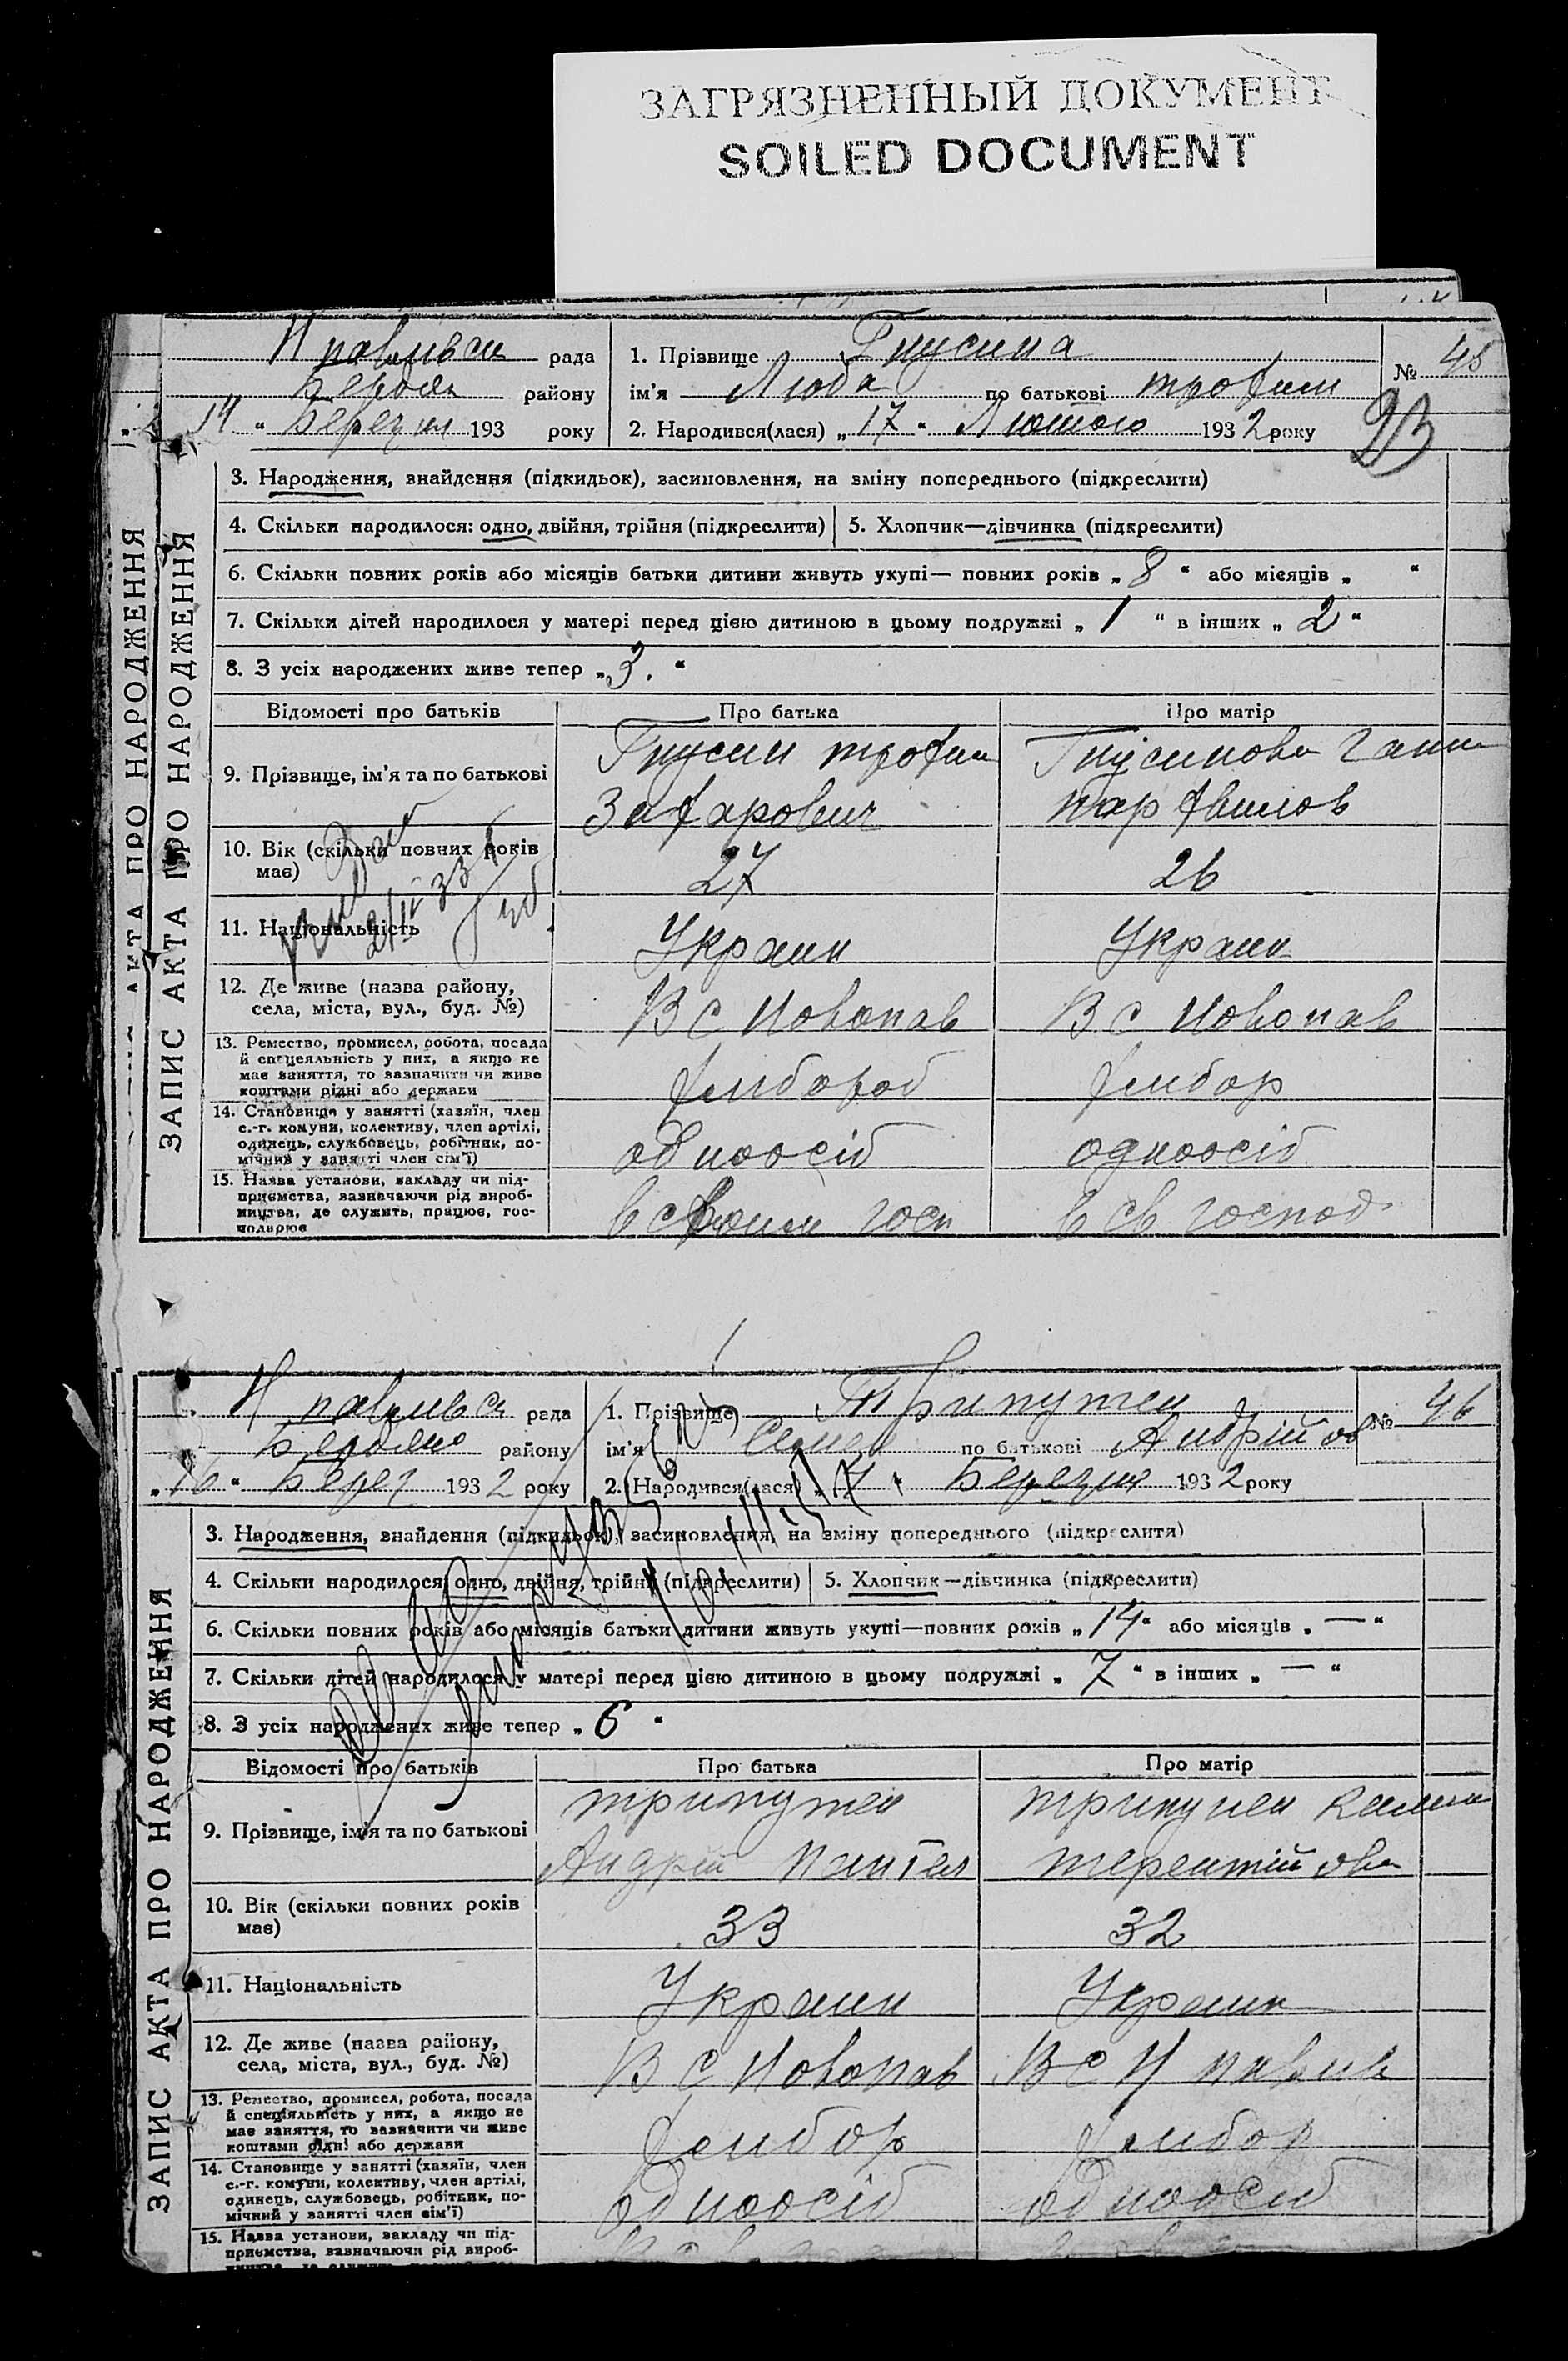 ЗАГРЯЗНЕННЫЙ ДОКУМЕНТ
SOILED DOCUMENT
ЗАПИС АКТА ПРО НАРОДЖЕННЯ
Н павливси рада
Бердян району
14 " Березня 193 року
1. Прізвище Гнусина
ім'я Люба по батькові трофим
2. Народився(лася) „17" Лютого 1932 року
№ 45
23
3. Народження, знайдення (підкидьок), засиновлення, на зміну попереднього (підкреслити)
4. Скільки народилося: одно, двійня, трійня (підкреслити)
5. Хлопчик—дівчинка (підкреслити)
6. Скільки повних років або місяців батьки дитини живуть укупі— повних років „8" або місяців „ "
7. Скільки дітей народилося у матері перед цією дитиною в цьому подружжі „1" в інших „2"
8. З усіх народжених живе тепер „3."
Відомості про батьків Про батька Про матір
9. Прізвище, ім'я та по батькові
Гнусин трофим
Захарович
Гнусинова Ганна
парфвилов
10. Вік (скільки повних років має)
27 26
11. Національність
Украин Украин
12. Де живе (назва району,
села, міста, вул., буд. №)
В С Новопав В С Новопав
13. Ремество, промисел, робота, посада
й спецеяльність у них, а якщо не
має заняття, то зазначити чи живе
коштами рідні або держави
хлибороб хлибор
14. Становище у занятті (хазяїн, член
с.-г. комуни, колективу, член артілі,
одинець, службовець, робітник, по-
мічник у занятті член сім'ї)
одноосіб одноосіб
15. Назва установи, закладу чи під-
приємства, зазначаючи рід вироб-
ництва, де служить, працює, гос-
подарює
в своим госп в св господ
ЗАПИС АКТА ПРО НАРОДЖЕННЯ
Н павливси рада
Бердянс району
„16" Берез 1932 року
1. Прізвище Трипутен
ім'я Семен по батькові Андрійов
2. Народився(лася) „7" Березня 1932 року
№ 46
3. Народження, знайдення (підкидьок), засиновлення, на зміну попереднього (підкреслити)
4. Скільки народилося одно, двійня, трійня (підкреслити)
5. Хлопчик—дівчинка (підкреслити)
6. Скільки повних років або місяців батьки дитини живуть укупі—повних років „14" або місяців „—"
7. Скільки дітей народилося у матері перед цією дитиною в цьому подружжі „7" в інших „—"
8. З усіх народжених живе тепер „6"
Відомості про батьків Про батька Про матір
9. Прізвище, ім'я та по батькові
трипутен
Андрій Пантел
терентійова
10. Вік (скільки повних років має)
33 32
11. Національність
Украин Украин
12. Де живе (назва району,
села, міста, вул., буд. №)
В С Новопав В С Н павлив
13. Ремество, промисел, робота, посада
й спеціяльність у них, а якщо не
має заняття, то зазначити чи живе
коштами рідні або держави
хлибор хлибор
14. Становище у занятті (хазяїн, член
с.-г. комуни, колективу, член артілі,
одинець, службовець, робітник, по-
мічний у занятті член сім'ї)
одноосіб одноосіб
15. Назва установи, закладу чи під-
приємства, зазначаючи рід вироб-